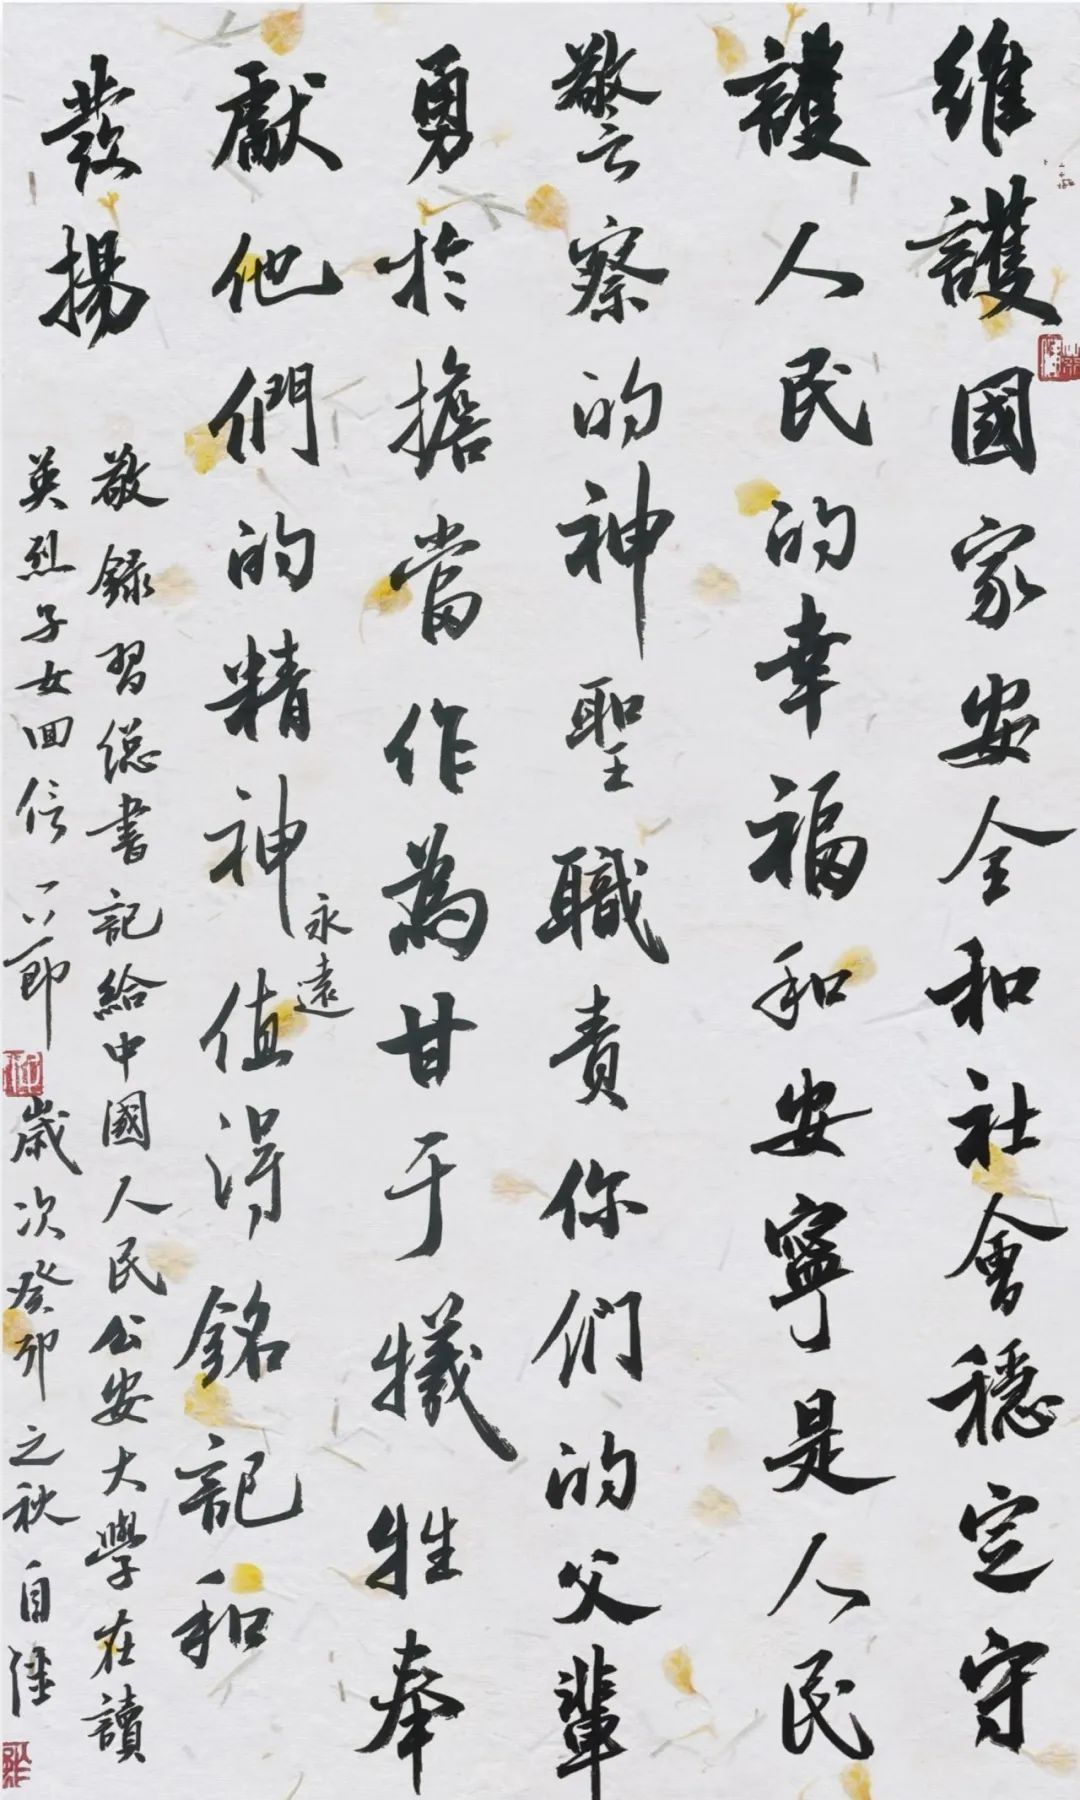 維護國家安全和社會穩定守
護人民的幸福和安寧是人民
警察的神聖職責你们的父輩
勇於擔當作為甘于犧牲奉
獻他們的精神值得銘記和
永遠
發揚
敬錄習總書記給中國人民公安大學在讀
英烈子女囬信一節 歲次癸卯之秋自